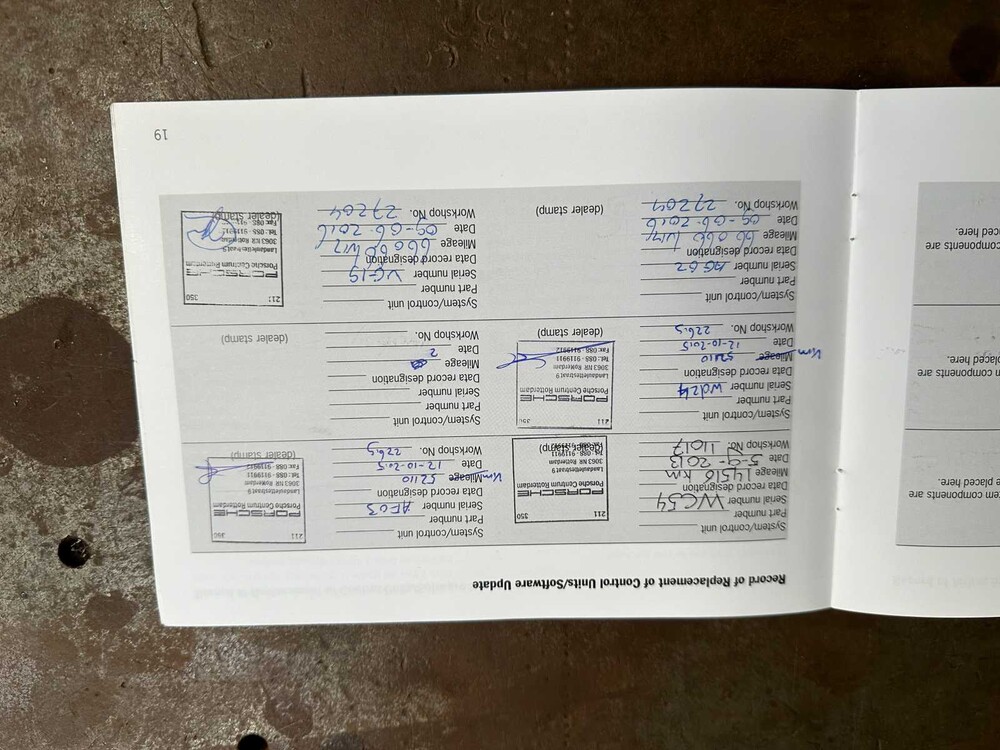 Record of Replacement of Control Units/Software Update
System/control unit
Part number
Serial number WC54
Data record designation
Mileage 14516 km
Date 5-9-2013
Workshop No. 11017
211 350
PORSCHE
Porsche Centrum Rotterdam
Landauletstraat 9
3063 NR Rotterdam
Tel.: 088 - 9119911
(dealer stamp)
System/control unit
Part number
Serial number AF03
Data record designation
Km Mileage 52110
Date 12-10-2015
Workshop No. 2265
211
PORSCHE
Porsche Centrum Rotterdam
Landauletstraat 9
3063 NR Rotterdam
Tel.: 088 - 9119911
Fax: 088 - 9119912
(dealer stamp)
System/control unit
Part number
Serial number WD24
Data record designation
Km Mileage 52110
Date 12-10-2015
Workshop No. 2265
211
PORSCHE
Porsche Centrum Rotterdam
Landauletstraat 9
3063 NR Rotterdam
Tel.: 088 - 9119911
Fax: 088 - 9119912
(dealer stamp)
System/control unit
Part number
Serial number
Data record designation
Mileage
Date
Workshop No.
(dealer stamp)
System/control unit
Part number
Serial number
Data record designation
Mileage
Date 09-06-2016
Workshop No. 27204
(dealer stamp)
System/control unit
Part number
Serial number
Data record designation
Mileage
Date 09-06-2016
Workshop No. 27204
350
PORSCHE
Porsche Centrum Rotterdam
Landauletstraat 9
3063 NR Rotterdam
Tel.: 088 - 9119911
(dealer stamp)
19
components are
placed here.
components are
placed here.
components are
placed here.